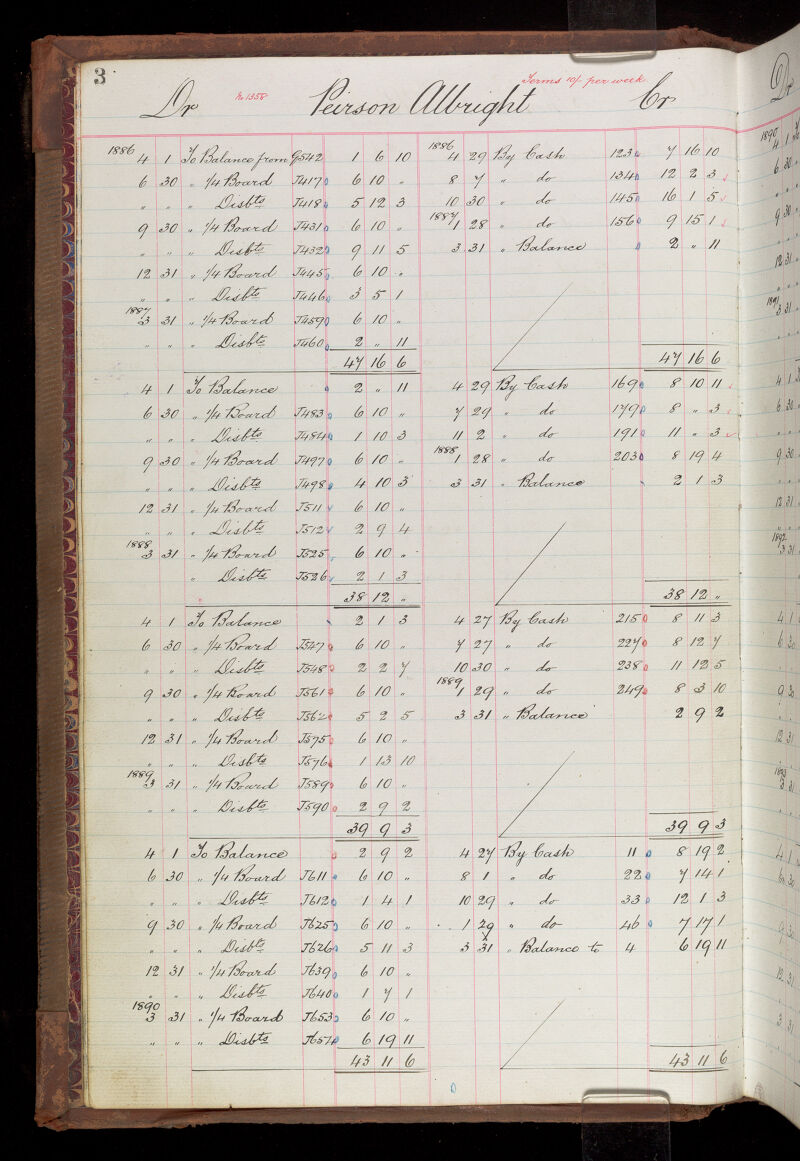 3
Dr No 1358 Peirson Albright Terms 10/- per week Cr
1886 4 1 To Balance from G542 1 6 10 1886 4 29 By Cash 123 7 16 10
6 30 " 1/4 Board J417 6 10 " 8 7 " do 134 12 2 3
" " " Disbts J418 5 12 3 10 30 " do 145 16 1 5
9 30 " 1/4 Board J431 6 10 " 1887 1 28 " do 156 9 15 1
" " " Disbts J432 9 11 5 3 31 " Balance 2 " 11
12 31 " 1/4 Board J445 6 10 "
" " " Disbts J446 3 5 1
1887 3 31 " 1/4 Board J459 6 10 "
" " " Disbts J460 2 " 11
47 16 6 47 16 6
4 1 To Balance 2 " 11 4 29 By Cash 169 8 10 11
6 30 " 1/4 Board J483 6 10 " 7 29 " do 179 8 " 3
" " " Disbts J484 1 10 3 11 2 " do 191 11 " 3
9 30 " 1/4 Board J497 6 10 " 1888 1 28 " do 203 8 19 4
" " " Disbts J498 4 10 3 3 31 " Balance 2 1 3
12 31 " 1/4 Board J511 6 10 "
" " " Disbts J512 2 9 4
1888 3 31 " 1/4 Board J525 6 10 "
" Disbts J526 2 1 3
38 12 " 38 12 "
4 1 To Balance 2 1 3 4 27 By Cash 215 8 11 3
6 30 " 1/4 Board J547 6 10 " 7 27 " do 227 8 12 7
" " " Disbts J548 2 2 7 10 30 " do 238 11 12 5
9 30 " 1/4 Board J561 6 10 " 1889 1 29 " do 249 8 3 10
" " " Disbts J562 5 2 5 3 31 " Balance 2 9 2
12 31 " 1/4 Board J575 6 10 "
" " " Disbts J576 1 13 10
1889 3 31 " 1/4 Board J589 6 10 "
" " " Disbts J590 2 9 2
39 9 3 39 9 3
4 1 To Balance 2 9 2 4 27 By Cash 11 8 19 2
6 30 " 1/4 Board J611 6 10 " 8 1 " do 22 7 14 1
" " " Disbts J612 1 4 1 10 29 " do 33 12 1 3
9 30 " 1/4 Board J625 6 10 " 1 29 " do 46 7 17 1
" " " Disbts J626 5 11 3 3 31 " Balance to 4 6 19 11
12 31 " 1/4 Board J639 6 10 "
" " " Disbts J640 1 7 1
1890 3 31 " 1/4 Board J653 6 10 "
" " " Disbts J654 6 19 11
43 11 6 43 11 6